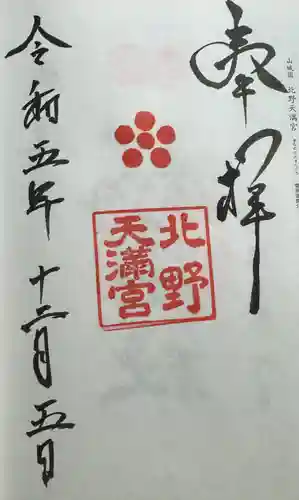 奉拝
山城国 北野天満宮
北野
天満宮
令和五年 十二月五日